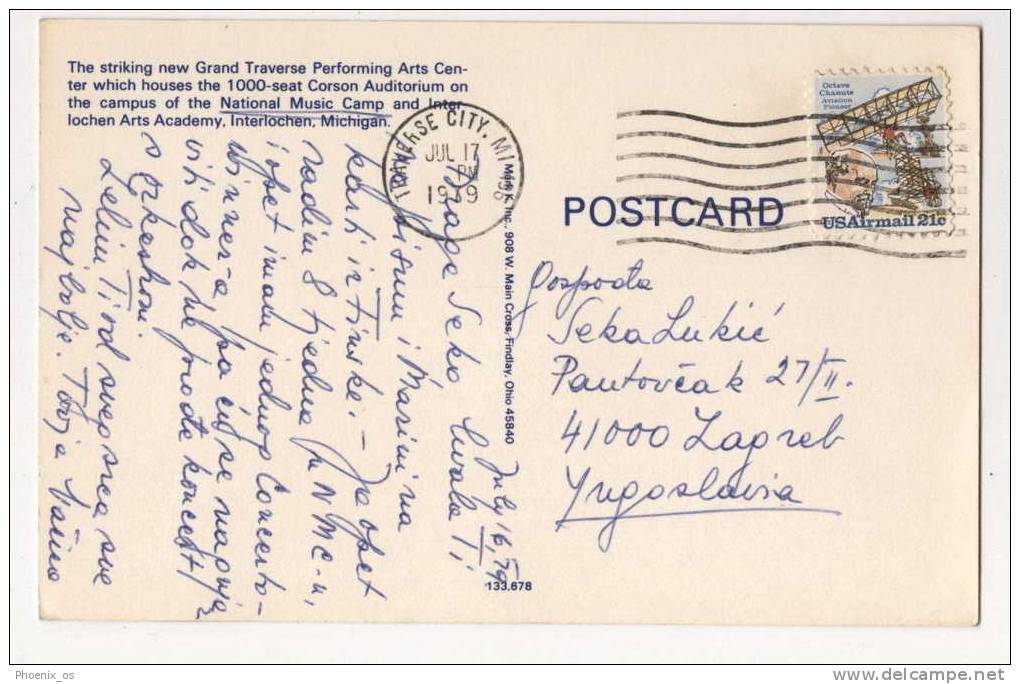 The striking new Grand Traverse Performing Arts Cen-
ter which houses the 1000-seat Corson Auditorium on
the campus of the National Music Camp and Inter
lochen Arts Academy, Interlochen, Michigan.
TRAVERSE CITY, MI
JUL 17
PM
1979
Octave
Chanute
Aviation
Pioneer
USAirmail 21c
POSTCARD
Mark K. Inc., 908 W. Main Cross, Findlay, Ohio 45840
133.678
July 16, 79
Drage Seko hvala Ti
na pismu i Marini na
karti iz Finske. – Ja opet
radim 8 tjedna u NMC-u,
i opet imam jednog Concerto-
Winner-a pa ću se naganjati
dok ne prođe koncert
s orkestrom.
Želim Ti od sveg srca sve
najbolje. Tvoja
Gospođa
Seka Lukić
Pantovčak 27/II.
41000 Zagreb
Yugoslavia
Phoenix_os
delcampe.net